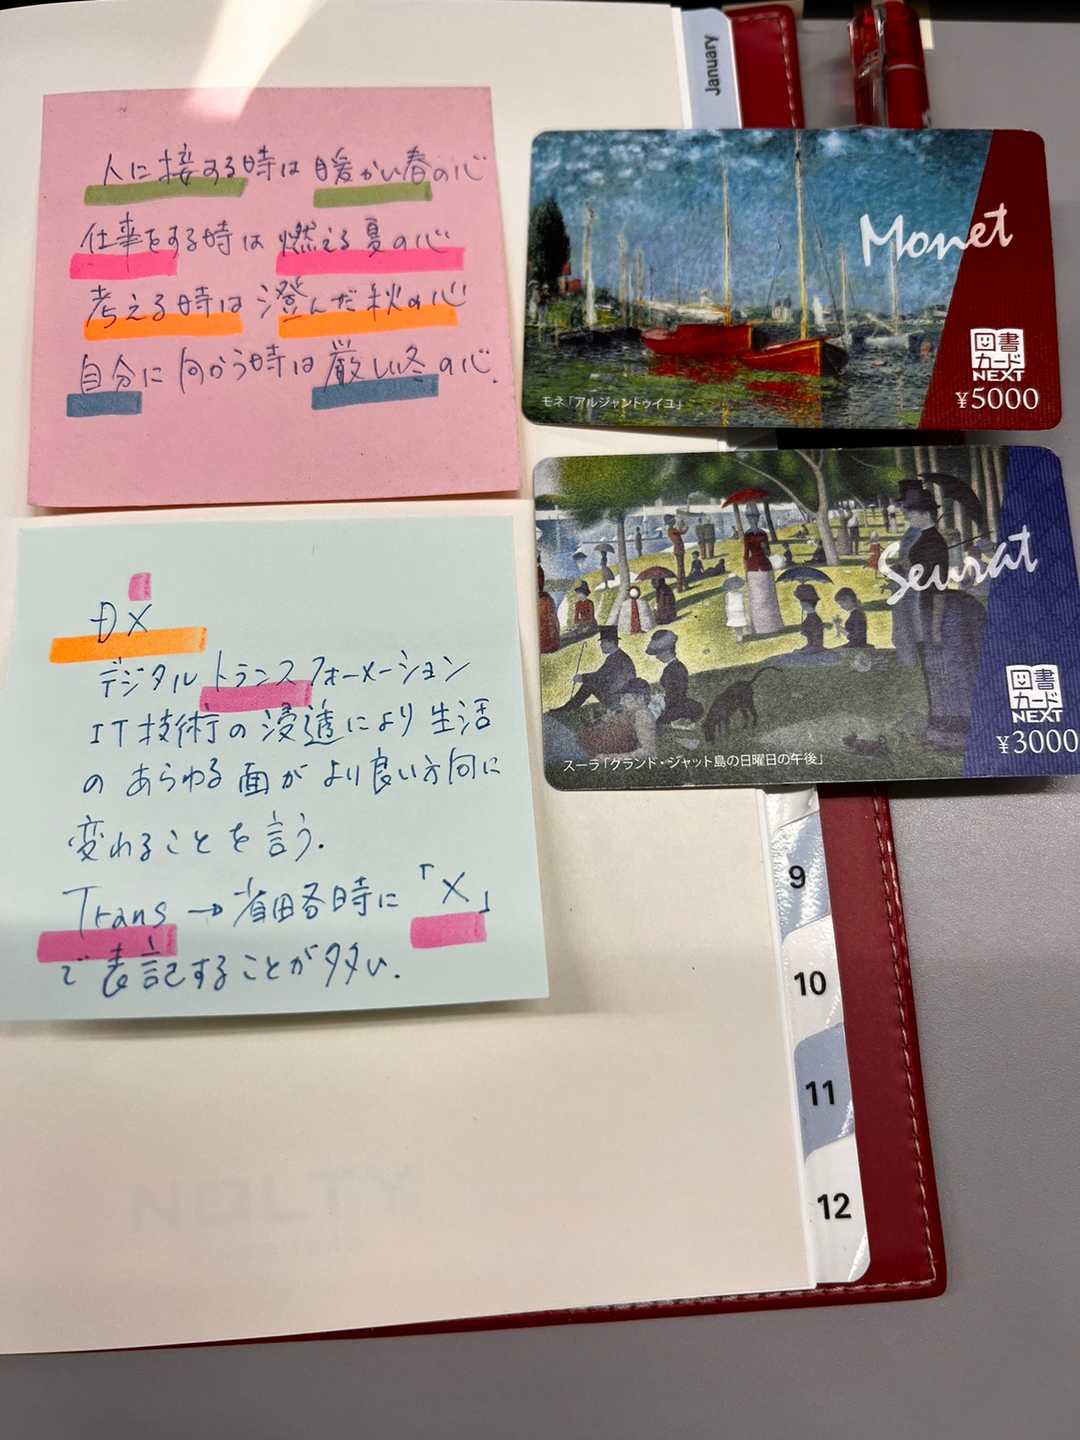 人に接する時は暖かい春の心
仕事をする時は燃える夏の心
考える時は澄んだ秋の心
自分に向かう時は厳しい冬の心.
DX
デジタルトランスフォーメーション
IT技術の浸透により生活
のあらゆる面がより良い方向に
変れることを言う.
Trans→省略時に「X」
で表記することが多い.
January
Monet
図書
カード
NEXT
¥5000
モネ「アルジャントゥイユ」
Seurat
図書
カード
NEXT
¥3000
スーラ「グランド・ジャット島の日曜日の午後」
9
10
11
12
NOLTY